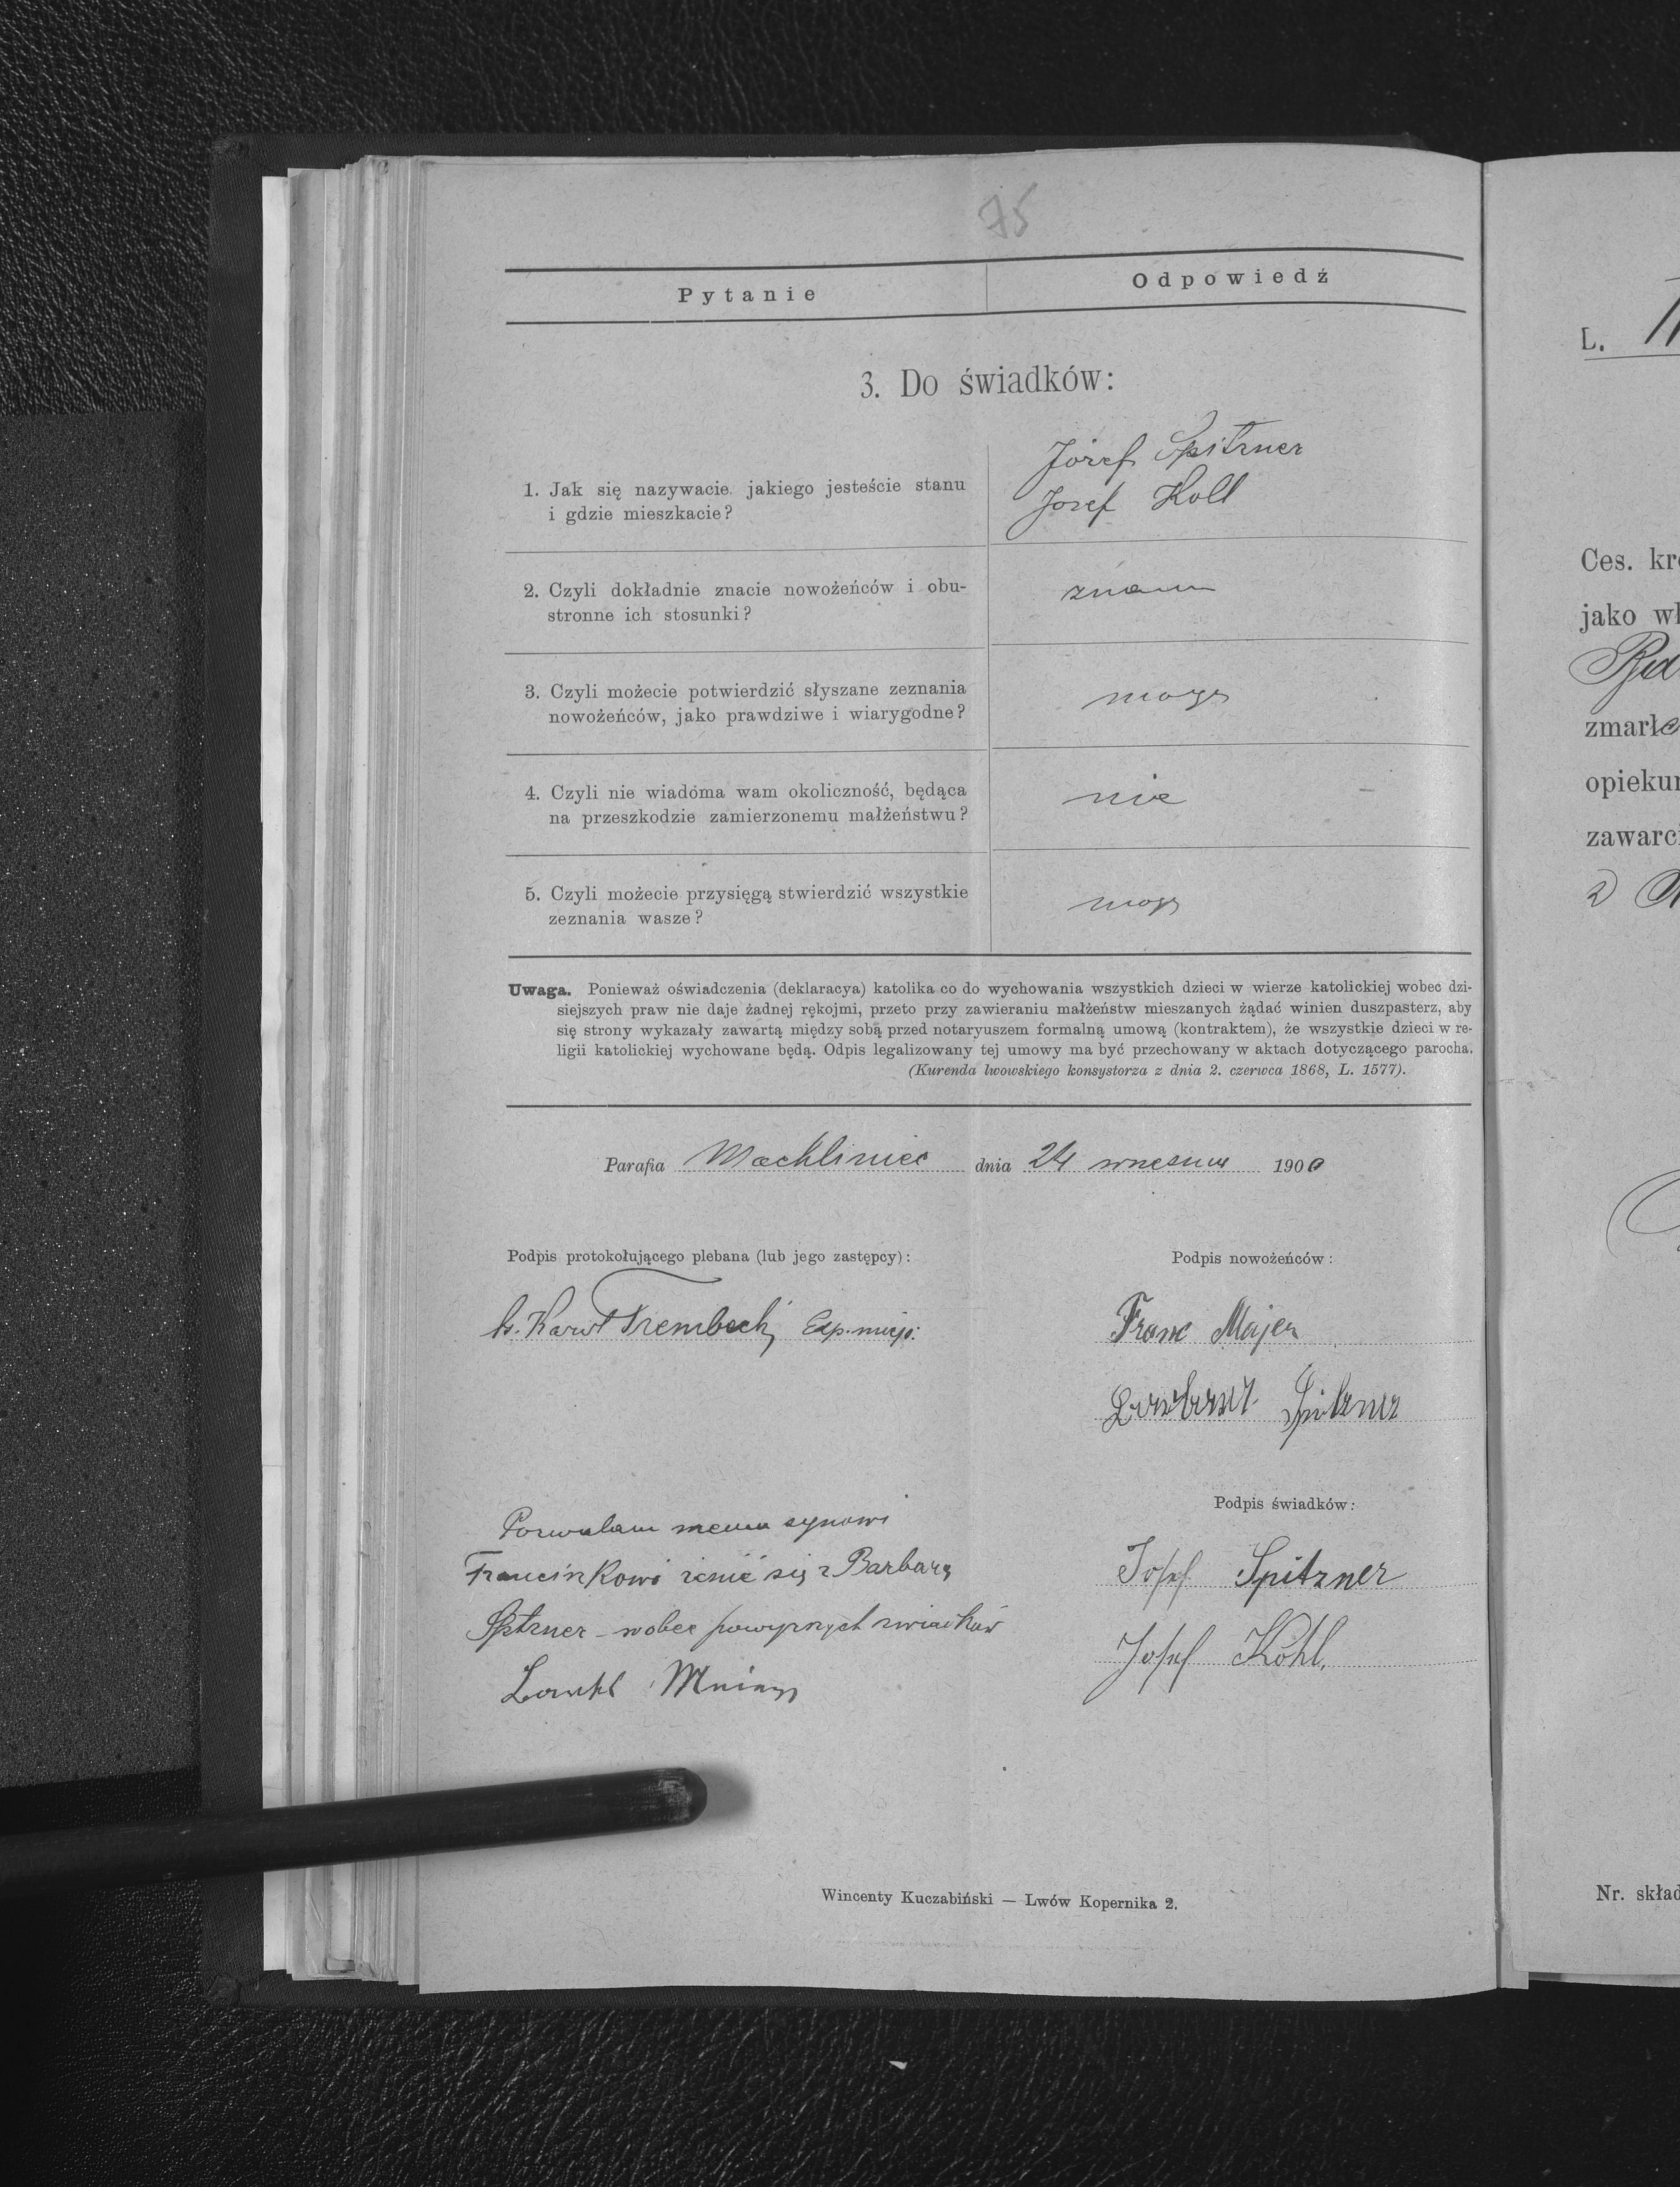 75
Pytanie
Odpowiedź
3. Do świadków:
Józef Spitzner
1. Jak się nazywacie jakiego jesteście stanu
i gdzie mieszkacie?
Jozef Koll
2. Czyli dokładnie znacie nowożeńców i obu-
stronne ich stosunki?
znam
3. Czyli możecie potwierdzić słyszane zeznania
nowożeńców, jako prawdziwe i wiarygodne?
mogę
4. Czyli nie wiadoma wam okoliczność, będąca
na przeszkodzie zamierzonemu małżeństwu?
nie
5. Czyli możecie przysięgą stwierdzić wszystkie
zeznania wasze?
mogę
Uwaga. Ponieważ oświadczenia (deklaracya) katolika co do wychowania wszystkich dzieci w wierze katolickiej wobec dzi-
siejszych praw nie daje żadnej rękojmi, przeto przy zawieraniu małżeństw mieszanych żądać winien duszpasterz, aby
się strony wykazały zawartą między sobą przed notaryuszem formalną umową (kontraktem), że wszystkie dzieci w re-
ligii katolickiej wychowane będą. Odpis legalizowany tej umowy ma być przechowany w aktach dotyczącego parocha.
(Kurenda lwowskiego konsystorza z dnia 2. czerwca 1868, L. 1577).
Parafia Machliniec dnia 24 wrzesnia 1900
Podpis protokołującego plebana (lub jego zastępcy):
Podpis nowożeńców:
Ks. Karol Trembecki Exp. miejs:
Franc Majer
Spitzner
Podpis świadków:
Pozwalam memu synowi
Francizkowi zenić się z Barbarą
Josef Spitzner
Spitzner - wobec powyzszych swiadków
Josef Kohl.
L.
Ces. kr
jako wł
zmarłe
opiekun
zawarci
Wincenty Kuczabiński — Lwów Kopernika 2.
Nr. skład